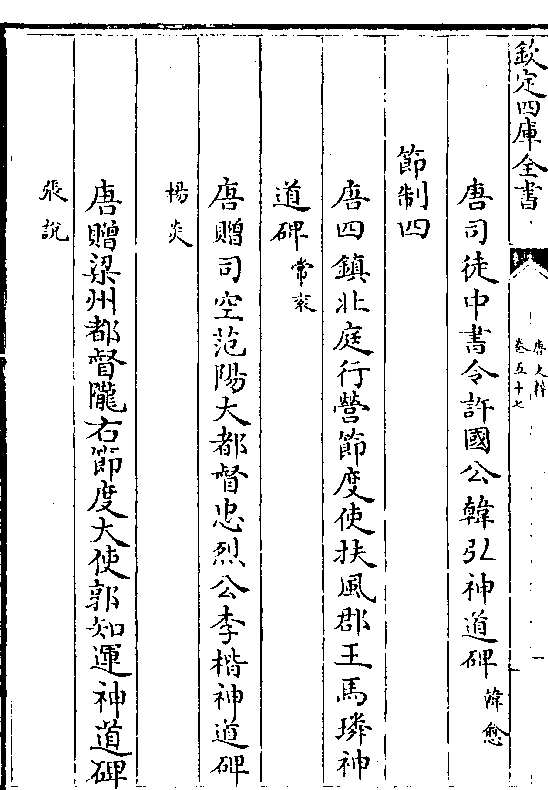 欽定四庫全書
唐文粹
卷五十七
一
唐司徒中書令許國公韓弘神道碑韓愈
節制四
唐四鎮北庭行營節度使扶風郡王馬璘神
道碑常衮
唐贈司空范陽大都督忠烈公李楷神道碑
楊炎
唐贈梁州都督隴右節度大使郭知運神道碑
張說